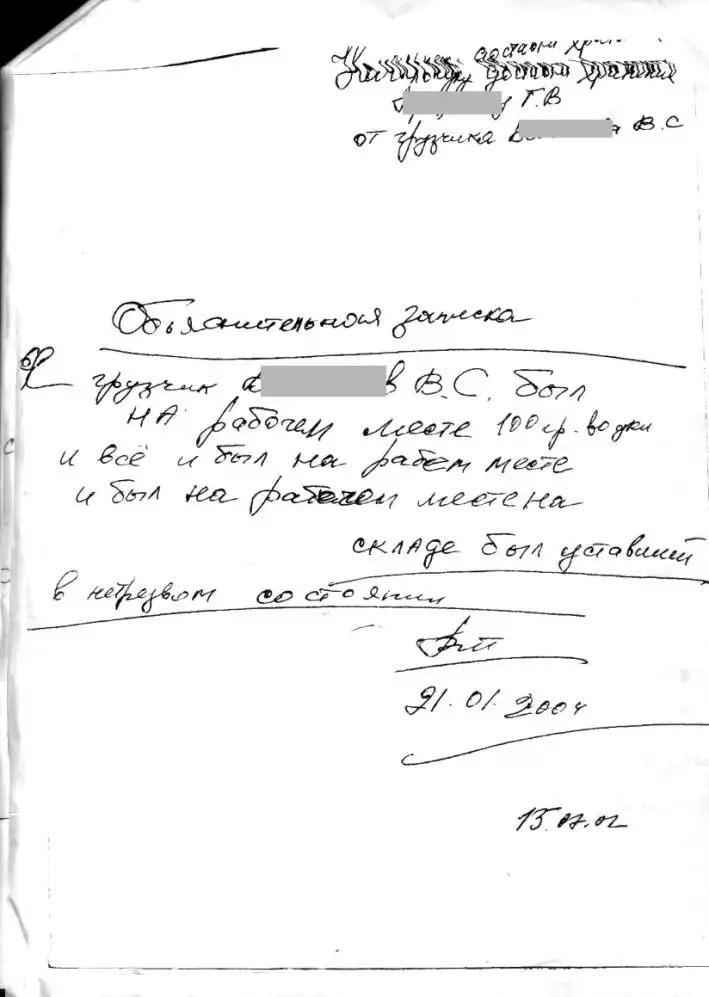 от грузчика В.С
Г.В
Объяснительная записка
грузчик в В.С. был
на рабочем месте 100 гр. водки
и всё и был на рабем месте
и был на рабочем месте на
складе был уставший
в нетрезвом состоянии
21.01.2004